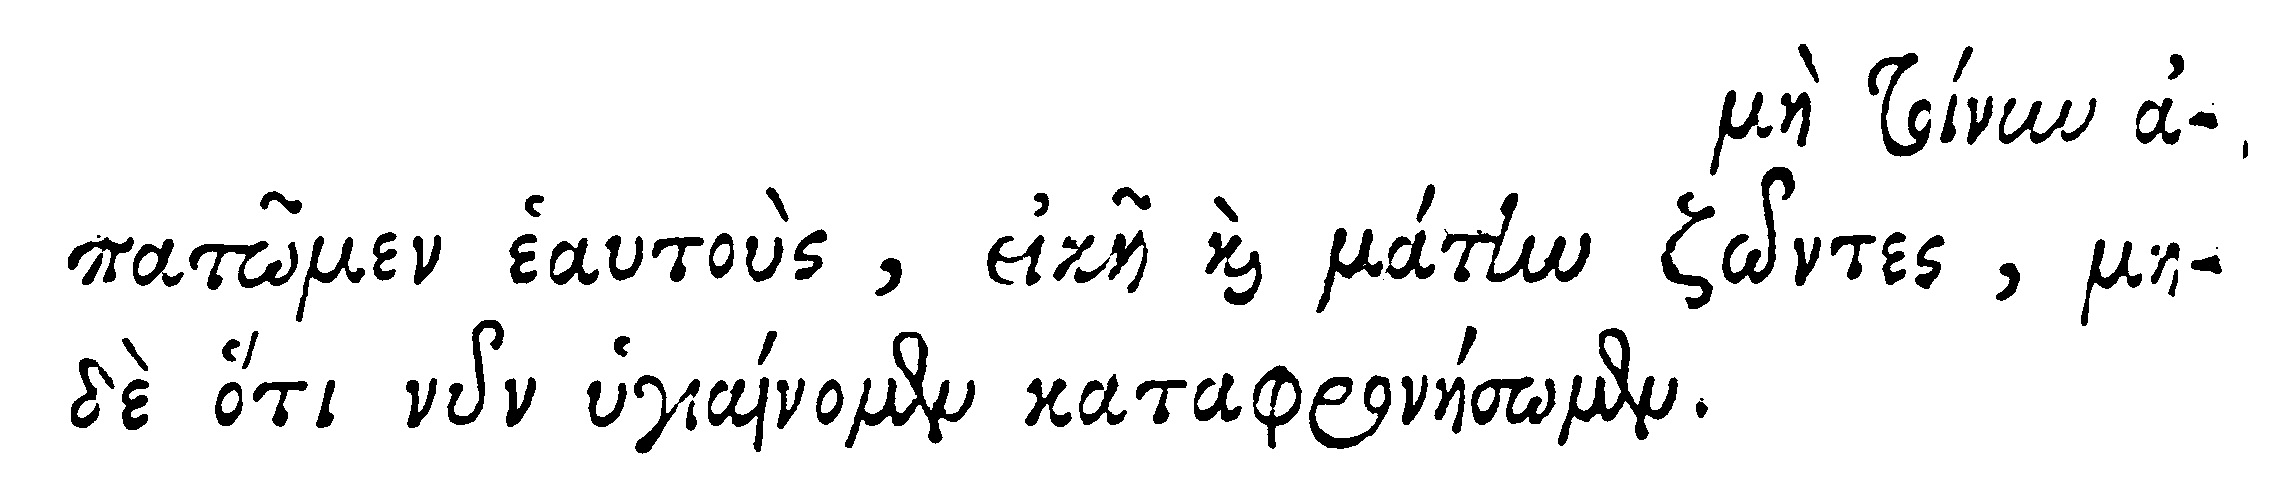 μὴ τοίνυν ἀ-
πατῶμεν ἑαυτοὺς, εἰκῆ καὶ μάτην ζῶντες, μη-
δὲ ὅτι νῦν ὑγιαίνομεν καταφρονήσωμεν.